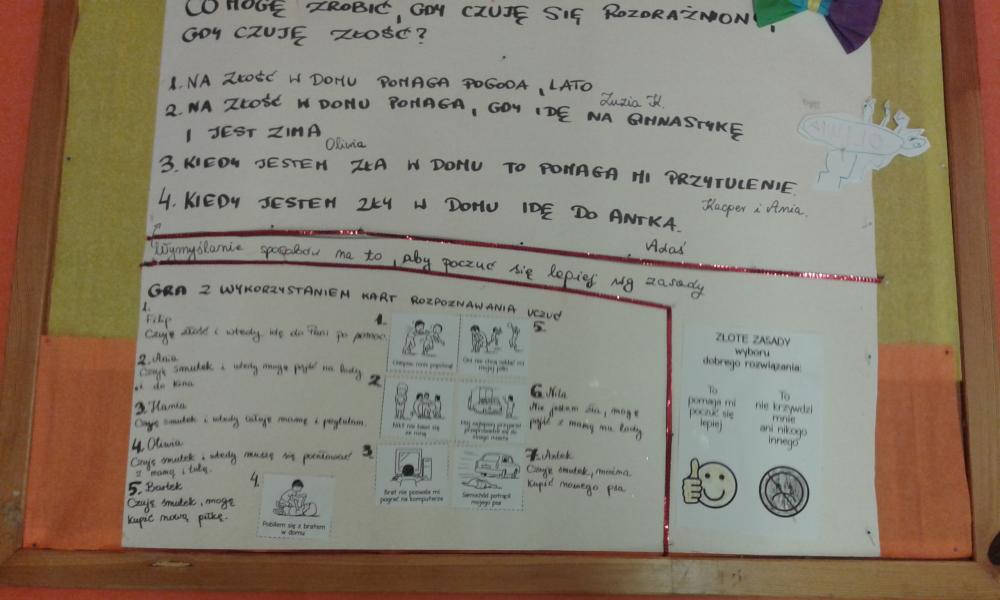 CO MOGĘ ZROBIĆ, GDY CZUJĘ SIĘ ROZDRAŻNIONY,
GDY CZUJĘ ZŁOŚĆ?
1. NA ZŁOŚĆ W DOMU POMAGA POGODA, LATO
Zuzia K.
2. NA ZŁOŚĆ W DOMU POMAGA, GDY IDĘ NA GIMNASTYKĘ
I JEST ZIMA
Oliwia
3. KIEDY JESTEM ZŁA W DOMU TO POMAGA MI PRZYTULENIE.
Kacper i Ania.
4. KIEDY JESTEM ZŁY W DOMU IDĘ DO ANTKA.
Adaś
Wymyślanie sposobów na to, aby poczuć się lepiej wg zasady
GRA Z WYKORZYSTANIEM KART ROZPOZNAWANIA UCZUĆ
1.
Filip
Czuję złość i wtedy idę do Pani po pomoc.
2. Ania
Czuję smutek i wtedy mogę pójść na lody
i do kina
3. Hania
Czuję smutek i wtedy całuję mamę i przytulam.
4. Oliwia
Czuję smutek i wtedy muszę się pocałować
z mamą i tatą.
5. Bartek
Czuję smutek, mogę
kupić nową piłkę.
1.
5.
2
3.
4.
Oni nie chcą oddać mi
mojej piłki
Nikt nie bawi się
ze mną
Mój najlepszy przyjaciel
przeprowadza się do
innego miasta
Brat nie pozwala mi
pograć na komputerze
Samochód potrącił
mojego psa
Pobiłem się z bratem
w domu
6. Nila
Nie jestem zła, mogę
pójść z mamą na lody
7. Antek
Czuję smutek, można
kupić nowego psa
ZŁOTE ZASADY
wyboru
dobrego rozwiązania:
To
pomaga mi
poczuć się
lepiej
To
nie krzywdzi
mnie
ani nikogo
innego